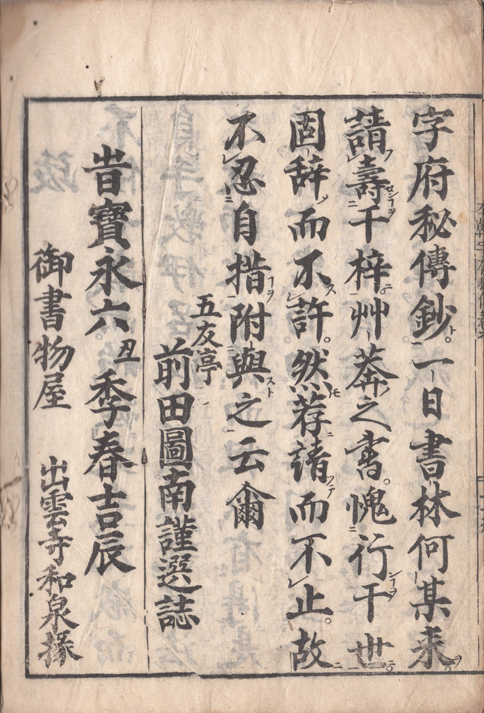 字府秘傳鈔一日書林何某来
請壽于梓艸莽之書愧行于世
固辞而不許然荐請而不止故
不忍自措附與之云爾
五友亭
前田圖南謹選誌
旹寳永六丑季春吉辰
御書物屋 出雲寺和泉掾